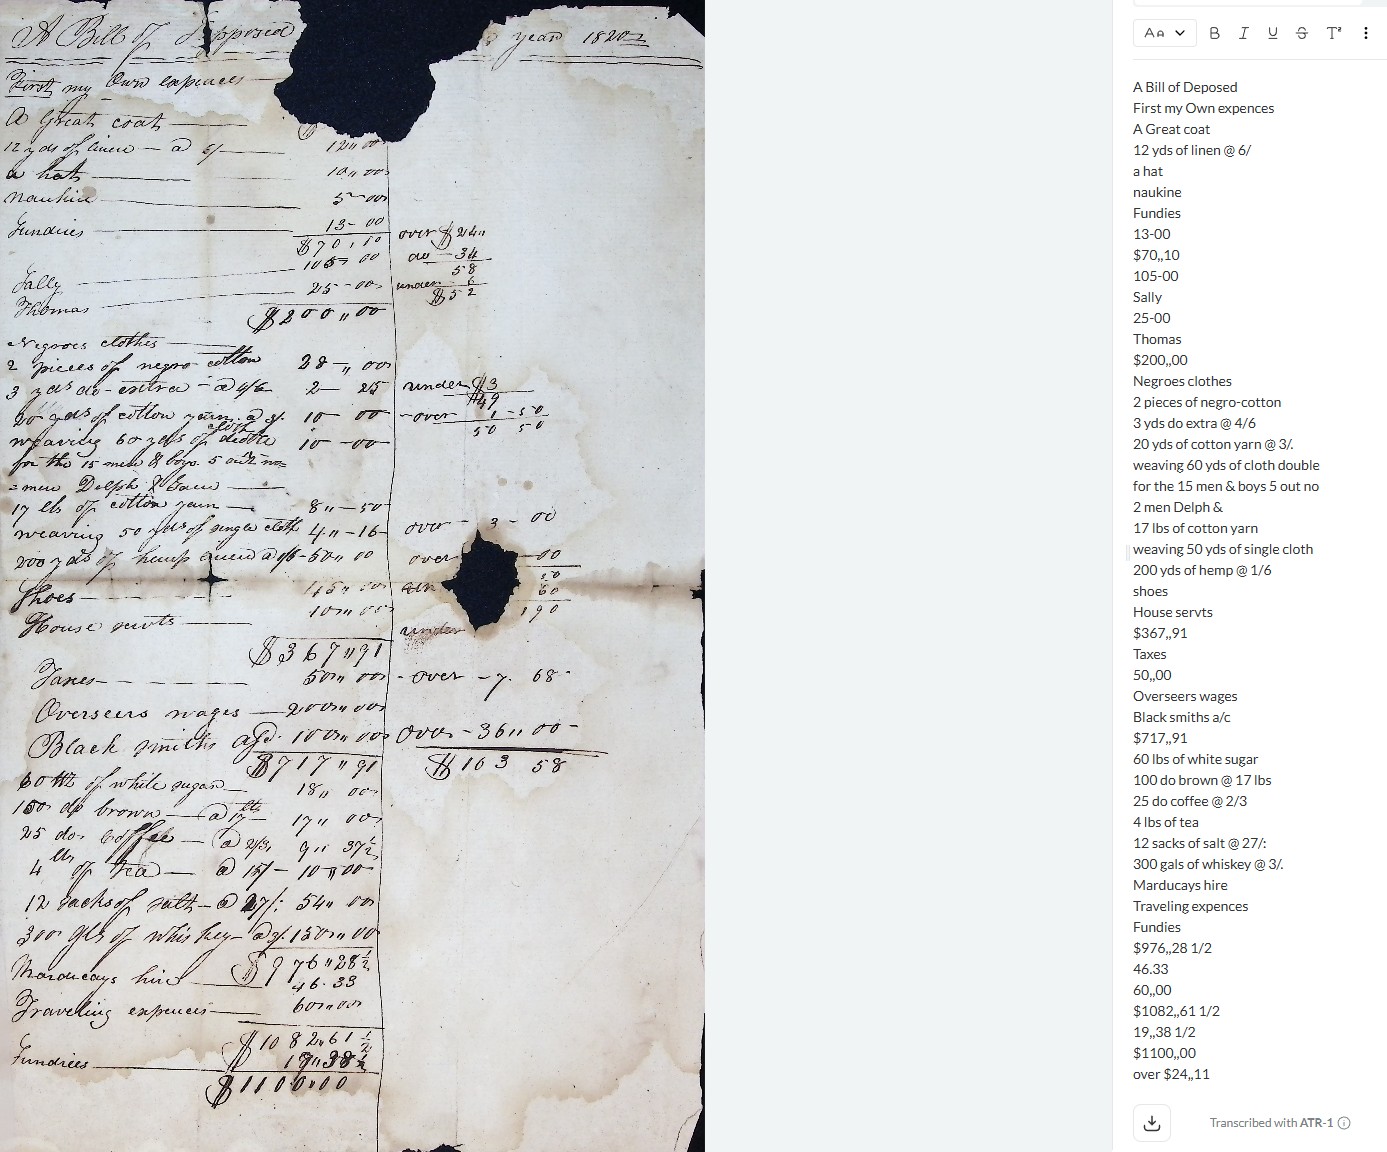 A Bill of Supposed
year 1820
First my Own expences
A Great coat
12 yds of linen — a 5/ 12,,00
a hat 10,,00
nankin 5-00
Sundries 13-00
$70,,10
over $24,,
do -34
58
under 6
$52
105-00
Sally
25-00
Thomas
$200,,00
Negroes clothes
2 pieces of negro cotton 28-,,00
3 yds do-extra-a 4/6 2-25 under $3
$49
20 yds of cotton yarn a 3/. 10-00 -over 1-50
50 50
weaving 60 yds of cloth double 10-00
for the 15 men & boys 5
=men Delph &
17 lbs of cotton yarn 8,,-50
weaving 50 yds of single cloth 4,,-16- over - 3 - 00
200 yds of hemp a 1/6-50,,00 over -00
50
Shoes 45,,00 60
House servts 10,,00 190
under
$367,,91
Taxes 50,,00 - over - 7. 68-
Overseers wages 200,,00
Black smiths a/c. 100,,00 over - 36,,00-
$717,,91 $163 58
60 lbs of white sugar 18,, 00
100 do brown a 17,, 00
25 do. Coffee a 2/3, 9,, 37½
4 lbs of tea a 15/- 10,,00
12 sacks of salt-a 27/: 54,,00
300 gls of whiskey-a 3/. 150,,00
$976,,28½
Marducays hire 46.33
Traveling expences 60,,00
$1082,,61½
Sundries 19,,38½
$1100,,00
AA B I U S T²
A Bill of Deposed
First my Own expences
A Great coat
12 yds of linen @ 6/
a hat
naukine
Fundies
13-00
$70,,10
105-00
Sally
25-00
Thomas
$200,,00
Negroes clothes
2 pieces of negro-cotton
3 yds do extra @ 4/6
20 yds of cotton yarn @ 3/.
weaving 60 yds of cloth double
for the 15 men & boys 5 out no
2 men Delph &
17 lbs of cotton yarn
weaving 50 yds of single cloth
200 yds of hemp @ 1/6
shoes
House servts
$367,,91
Taxes
50,,00
Overseers wages
Black smiths a/c
$717,,91
60 lbs of white sugar
100 do brown @ 17 lbs
25 do coffee @ 2/3
4 lbs of tea
12 sacks of salt @ 27/:
300 gals of whiskey @ 3/.
Marducays hire
Traveling expences
Fundies
$976,,28 1/2
46.33
60,,00
$1082,,61 1/2
19,,38 1/2
$1100,,00
over $24,,11
Transcribed with ATR-1